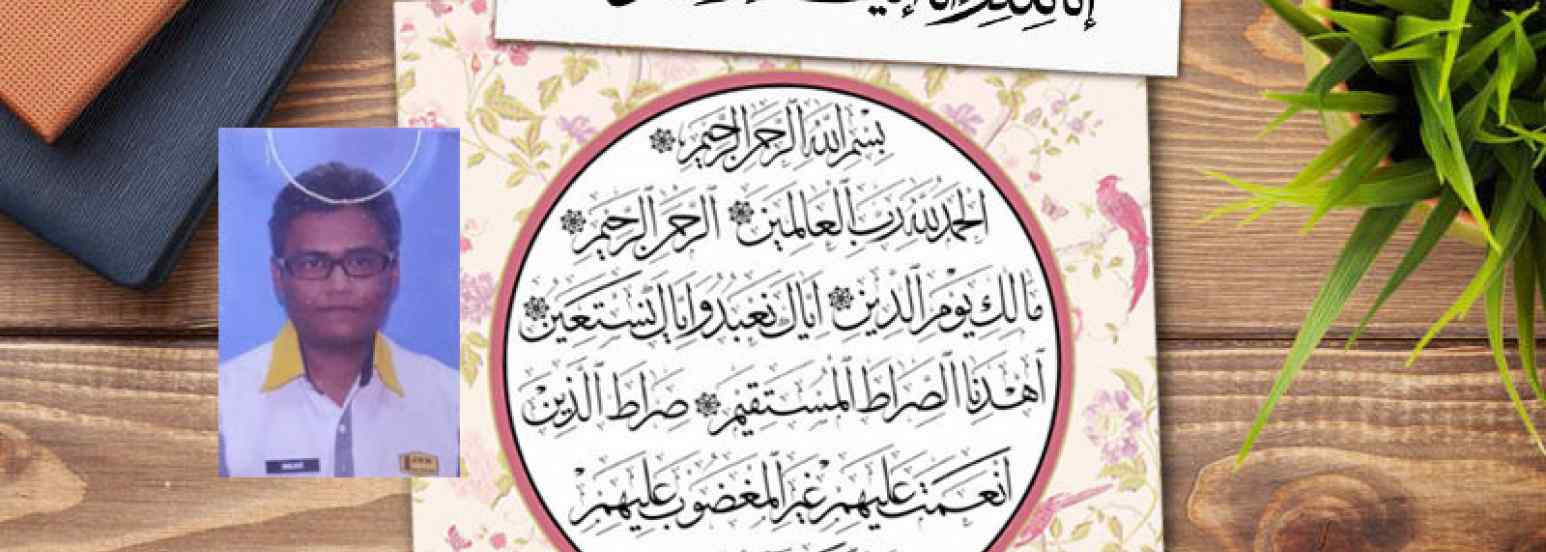 إنا لله وإنا إليه
بسم الله الرحمن الرحيم
الحمد لله رب العالمين ۞ الرحمن الرحيم ۞
مالك يوم الدين ۞ اياك نعبد واياك نستعين ۞
اهدنا الصراط المستقيم ۞ صراط الذين
انعمت عليهم غير المغضوب عليهم